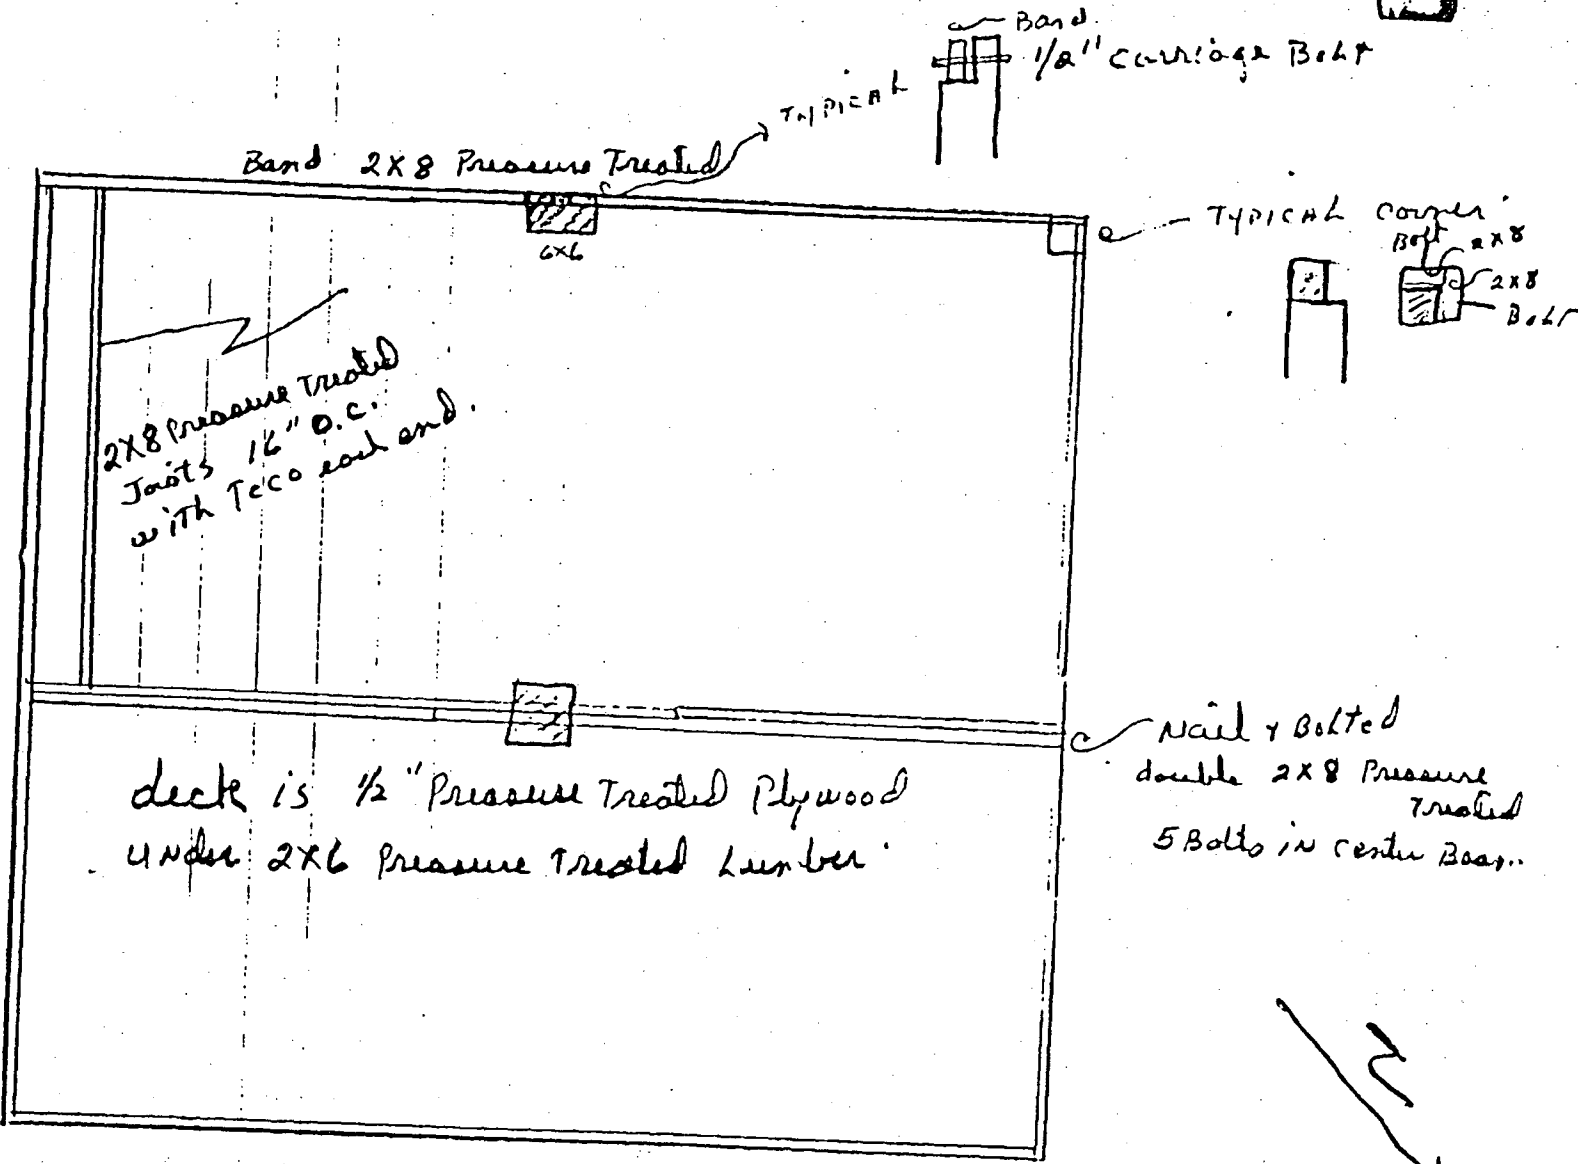 Band
1/2" Carriage Bolt
TYPICAL
Band 2X8 Pressure Treated
6x6
TYPICAL Corner
Bolt
2x8
2x8
Bolt
2X8 Pressure Treated
Joists 16" O.C.
with Teco each end.
Nail & Bolted
double 2X8 Pressure
Treated
5 Bolts in center
deck is 1/2" Pressure Treated Plywood
under 2X6 Pressure Treated Lumber